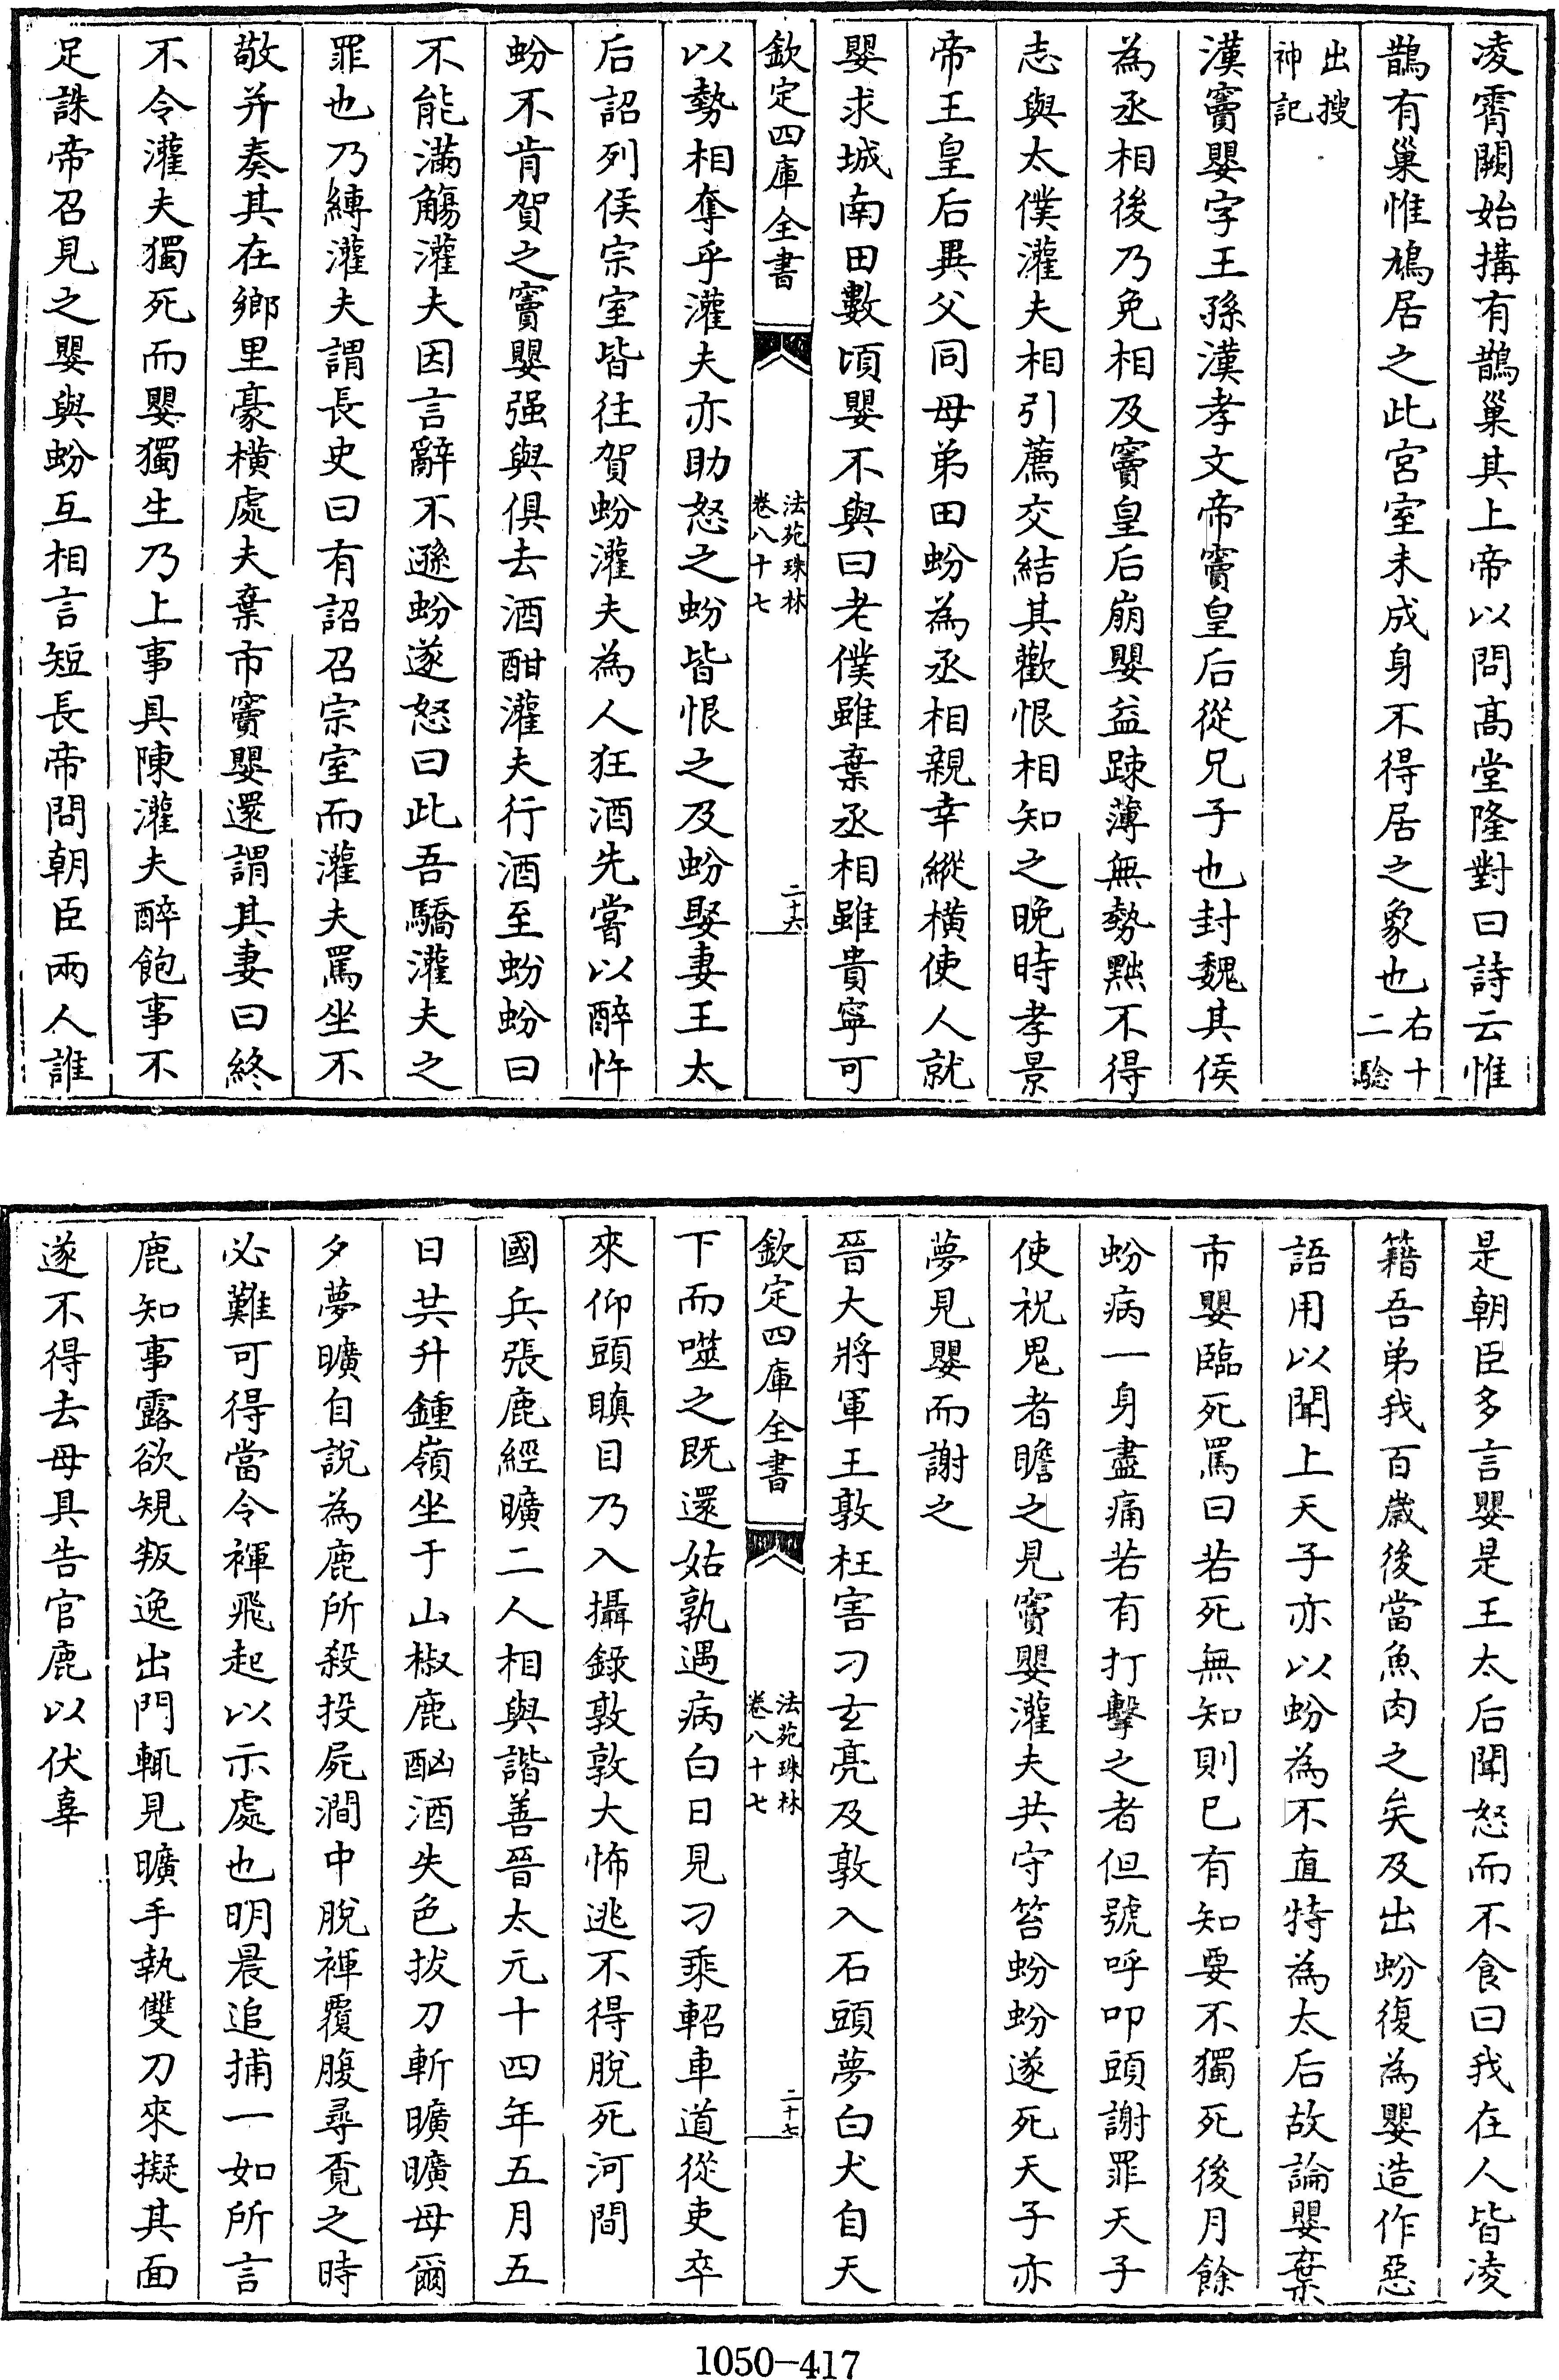 凌霄闕始搆有鵲巢其上帝以問髙堂隆對曰詩云惟
鵲有巢惟鳩居之此宮室未成身不得居之象也右十二驗
出搜神記
漢竇嬰字王孫漢孝文帝竇皇后從兄子也封魏其侯
為丞相後乃免相及竇皇后崩嬰益踈薄無勢黜不得
志與太僕灌夫相引薦交結其歡恨相知之晚時孝景
帝王皇后異父同母弟田蚡為丞相親幸縱橫使人就
嬰求城南田數頃嬰不與曰老僕雖棄丞相雖貴寧可
欽定四庫全書
法苑珠林
卷八十七
二十六
以勢相奪乎灌夫亦助怒之蚡皆恨之及蚡娶妻王太
后詔列侯宗室皆往賀蚡灌夫為人狂酒先嘗以醉忤
蚡不肯賀之竇嬰强與俱去酒酣灌夫行酒至蚡蚡曰
不能滿觴灌夫因言辭不遜蚡遂怒曰此吾驕灌夫之
罪也乃縛灌夫謂長史曰有詔召宗室而灌夫罵坐不
敬并奏其在鄉里豪橫處夫棄市竇嬰還謂其妻曰終
不令灌夫獨死而嬰獨生乃上事具陳灌夫醉飽事不
足誅帝召見之嬰與蚡互相言短長帝問朝臣兩人誰
是朝臣多言嬰是王太后聞怒而不食曰我在人皆凌
籍吾弟我百歲後當魚肉之矣及出蚡復為嬰造作惡
語用以聞上天子亦以蚡為不直特為太后故論嬰棄
市嬰臨死罵曰若死無知則已有知要不獨死後月餘
蚡病一身盡痛若有打擊之者但號呼叩頭謝罪天子
使祝鬼者瞻之見竇嬰灌夫共守笞蚡蚡遂死天子亦
夢見嬰而謝之
晉大將軍王敦枉害刁玄亮及敦入石頭夢白犬自天
欽定四庫全書
法苑珠林
卷八十七
二十七
下而噬之既還姑孰遇病白日見刁乘軺車道從吏卒
來仰頭瞋目乃入攝錄敦敦大怖逃不得脫死河間
國兵張鹿經曠二人相與諧善晉太元十四年五月五
日共升鍾嶺坐于山椒鹿酗酒失色拔刀斬曠曠母爾
夕夢曠自說為鹿所殺投屍澗中脫褌覆腹尋覔之時
必難可得當令褌飛起以示處也明晨追捕一如所言
鹿知事露欲規叛逸出門輒見曠手執雙刀來擬其面
遂不得去母具告官鹿以伏辜
1050-417